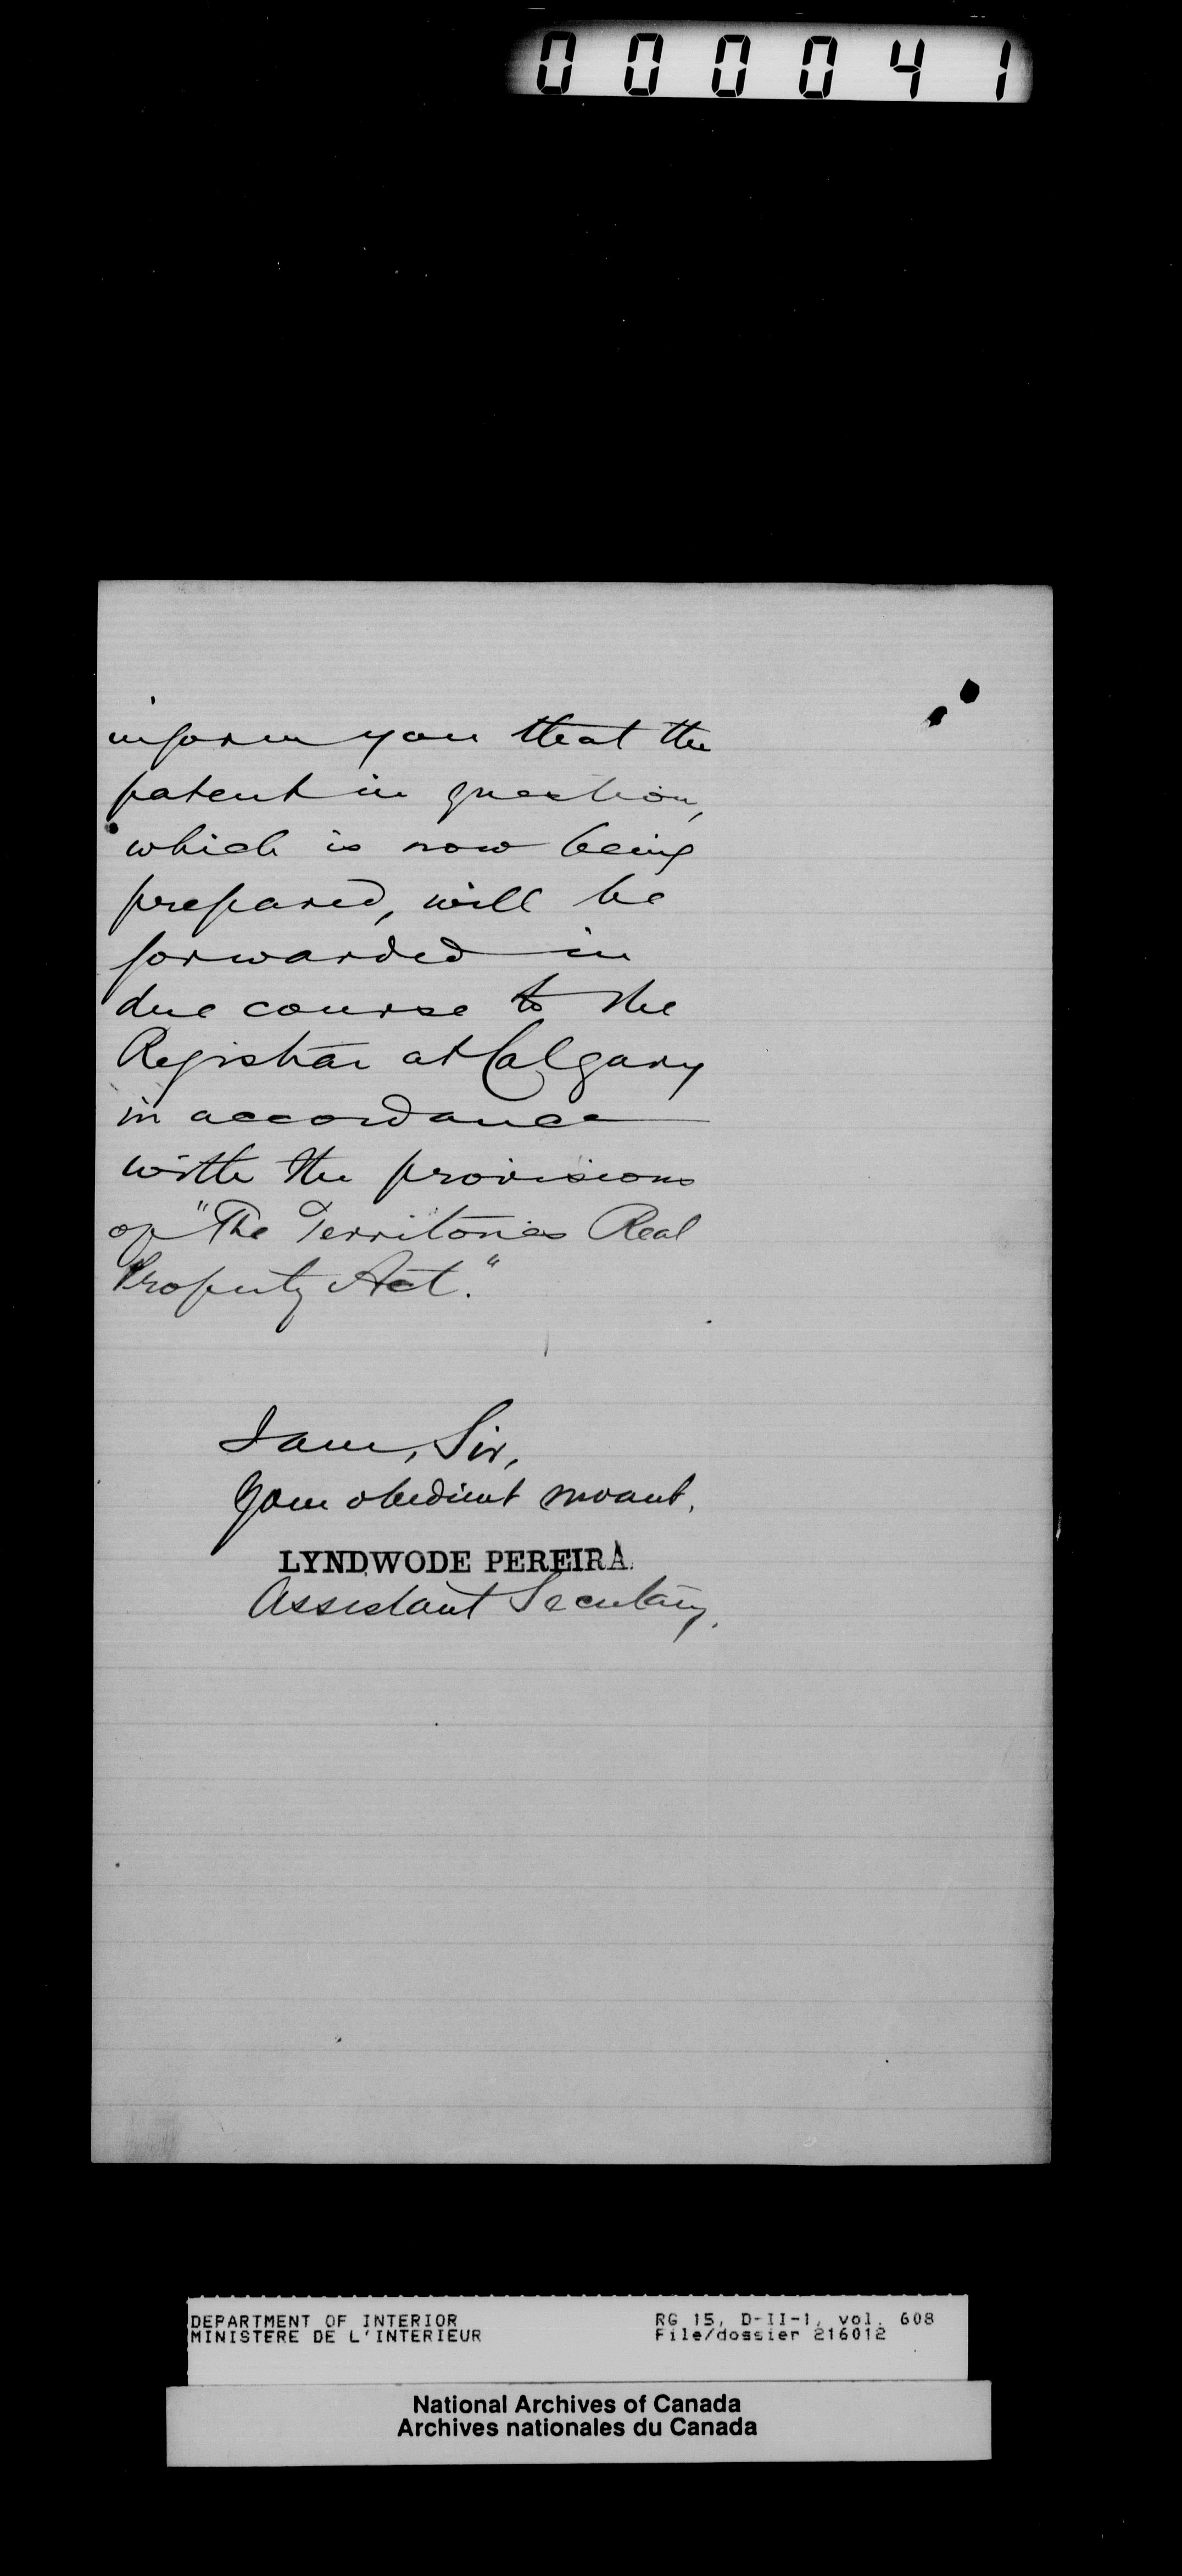 000041
inform you that the
patent in question,
which is now being
prepared, will be
forwarded in
due course to the
Registrar at Calgary
in accordance
with the provisions
of "The Territories Real
Property Act."
I am, Sir,
Your obedient servant,
LYNDWODE PEREIRA.
Assistant Secretary.
DEPARTMENT OF INTERIOR
MINISTERE DE L'INTERIEUR
RG 15, D-II-1, vol. 608
File/dossier 216012
National Archives of Canada
Archives nationales du Canada